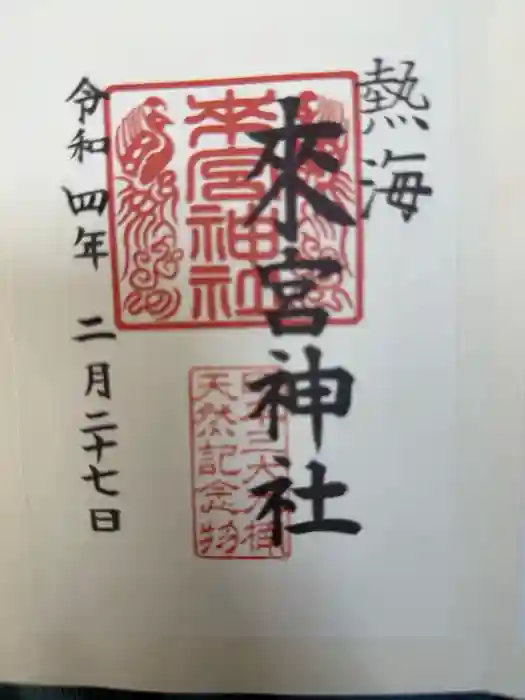 熱海
來宮神社
來宮神社
天然記念物
令和四年 二月二十七日